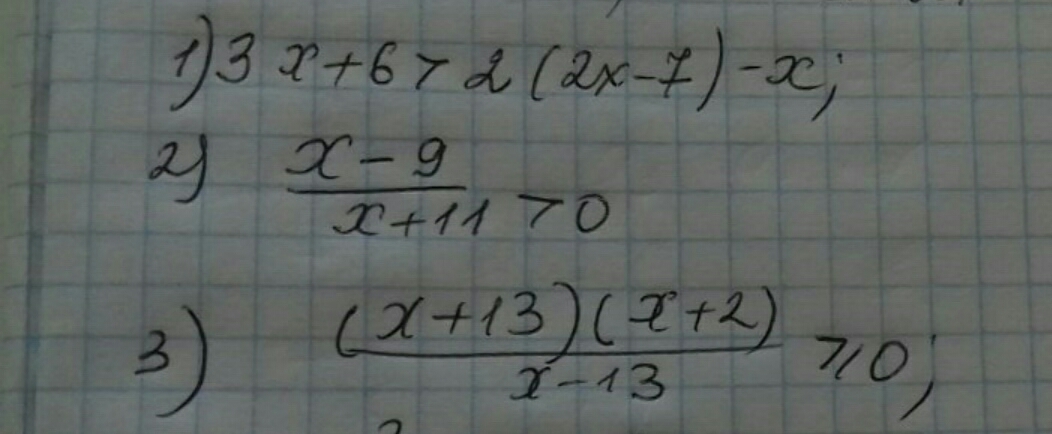 1) 3x+6>2(2x-7)-x;
2) (x-9)/(x+11)>0
3) ((x+13)(x+2))/(x-13)⩾0;